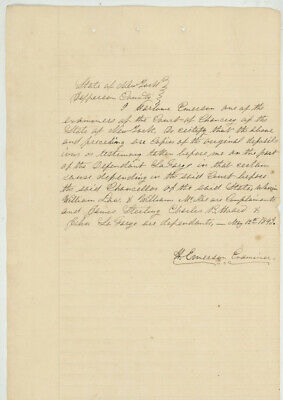 State of New York
Jefferson County
I Emerson one of the
examiners of the Court of Chancery of the
State of New York Do certify that the above
and preceding are copies of the original deposit
ions or testimony taken before me on the part
of the Defendant La Farge in that certain
cause depending in the said Court before
the said Chancellor of the said State, wherein
William & William are Complainants
and James Sterling Charles &
John La Farge are defendants. — May 12th
H. Emerson Examiner